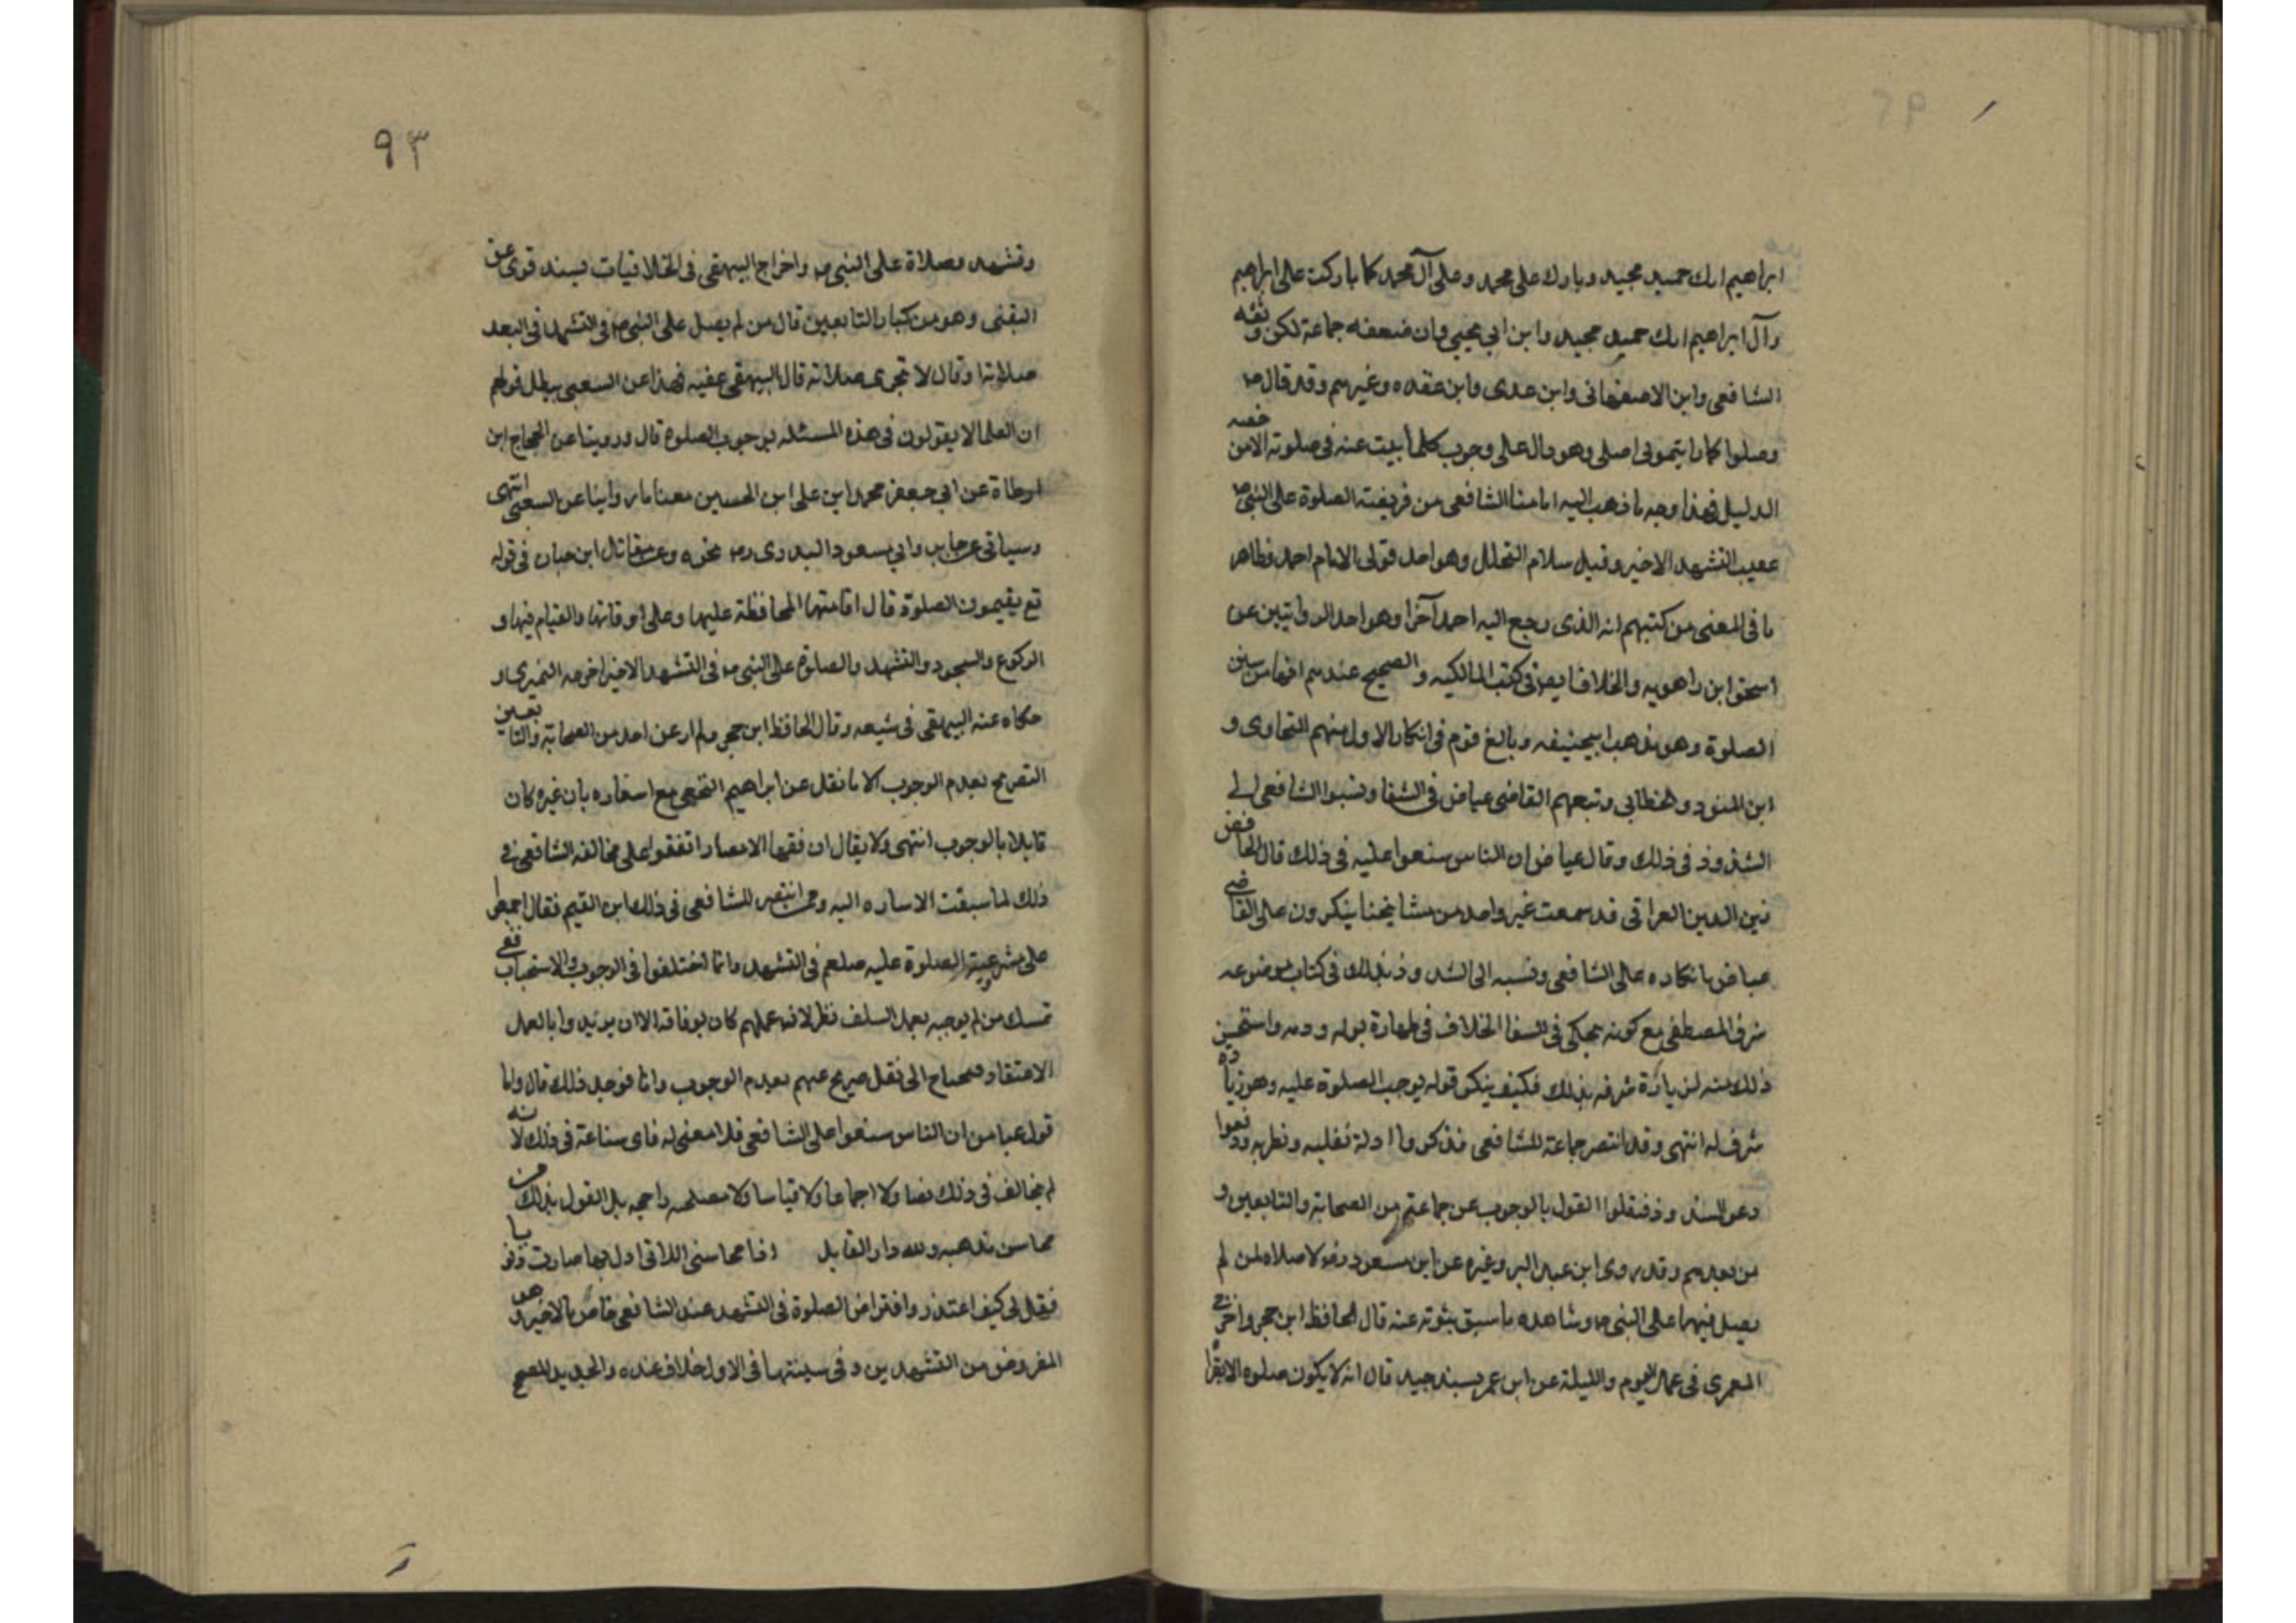 ابراهيم انك حميد مجيد وبارك على محمد وعلى آل محمد كما باركت على ابراهيم
وآل ابراهيم انك حميد مجيد وابن ابي يحيى وان ضعفه جماعة لكن وثقه
الشافعى وابن الاصفهانى وابن عدى وابن عقده وغيرهم وقد قال ص
وصلوا كما رايتمونى اصلى وهو دال على وجوب كلما ثبت عنه فى صلوته الا من خصه
الدليل فهذا وجه ما ذهب اليه امامنا الشافعى من فريضة الصلوة على النبى ص
عقيب التشهد الاخير وقبل سلام التحلل وهو احد قولى الامام احمد فظاهر
ما فى المغنى من كتبهم انه الذى رجع اليه احمد آخرا وهو احد الروايتين عن
اسحق ابن راهويه والخلاف ايضا فى كتب المالكيه والصحيح عندهم انها من سنن
الصلوة وهو مذهب ابيحنيفه وبالغ قوم فى انكار الاول منهم الطحاوى و
ابن المنذر والخطابى وتبعهم القاضى عياض فى الشفا ونسبوا الشافعى الى
الشذوذ فى ذلك وقال عياض ان الناس شنعوا عليه فى ذلك قال الحافظ
زين الدين العراقى قد سمعت غير واحد من مشايخنا ينكرون على القاضى
عياض انكاره على الشافعى ونسبه الى الشذوذ بذلك فى كتاب موضوعه
شرف المصطفى مع كونه يحكى فى الشفا الخلاف فى طهارة بوله ودمه واستحسن
ذلك منه لزيادة شرفه بذلك فكيف ينكر قوله بوجوب الصلوة عليه وهو زيادة
شرف له انتهى وقد انتصر جماعة للشافعى فذكروا ادلة نقليه ونظريه ودفعوا
دعوى الشذوذ فنقلوا القول بالوجوب عن جماعة من الصحابة والتابعين و
من بعدهم وقد روى ابن عبد البر وغيره عن ابن مسعود رض لا صلاه لمن لم
يصل فيها على النبى ص وشاهده ما سبق ثبوته عنه قال الحافظ ابن حجر واخرج
المعمرى فى عمل اليوم والليلة عن ابن عمر بسند جيد قال انه لا يكون صلوه الا بقراه
٩٣
وتشهد وصلاة على النبى ص واخراج البيهقى فى الخلافيات بسند قوى عن
الشعبى وهو من كبار التابعين قال من لم يصل على النبى ص فى التشهد فليعد
صلاته او قال لا تجزى صلاته قال البيهقى عقبه فهذا عن الشعبى يبطل قولهم
ان العلما لا يقولون فى هذه المسئله بوجوب الصلوة قال وروينا عن الحجاج ابن
ارطاة عن ابى جعفر محمد ابن على ابن الحسين معنا ما روايناعن الشعبى انتهى
وسياتى عن جابر وابى مسعود البدرى رض نحوه وعن مقاتل ابن حبان فى قوله
تع يقيمون الصلوة قال اقامتها المحافظة عليها وعلى اوقاتها والقيام فيها و
الركوع والسجود والتشهد والصلوة على النبى ص فى التشهد الاخير اخرجه النميرى و
حكاه عنه البيهقى فى شعبه وقال الحافظ ابن حجر ولم ار عن احد من الصحابة والتابعين
التصريح بعدم الوجوب الا ما نقل عن ابراهيم النخعى مع اشعاره بان غيره كان
قايلا بالوجوب انتهى ولا يقال ان فقها الامصار اتفقوا على مخالفه الشافعى فى
ذلك لما سبقت الاساره اليه وممن انتصر للشافعى فى ذلك ابن القيم فقال اجمعوا
على مشروعية الصلوة عليه صلعم فى التشهد وانما اختلفوا فى الوجوب والاستحباب ففى
تمسك من لم يوجبه بعمل السلف نظر لانه عملهم كان بوفاقه الا ان يريدوا بالعمل
الاعتقاد فيحتاج الى نقل صريح عنهم بعدم الوجوب وانا فوجد ذلك قال واما
قول عياض ان الناس شنعوا على الشافعى فلا معنى له فاى شناعة فى ذلك لانه
لم يخالف فى ذلك نصا ولا اجماعا ولا قياسا ولا مصلحه راجحه بل القول بذلك من
محاسن مذهبه ولله در القايل اذا محاسنى اللاتى ادل بها صارت ذنوبا
فقل لى كيف اعتذر وافتراض الصلوة فى التشهد عند الشافعى خاص بالاخير
المفروض من التشهدين وفى سنيتها فى الاول خلاف عنده والجديد الصحيح